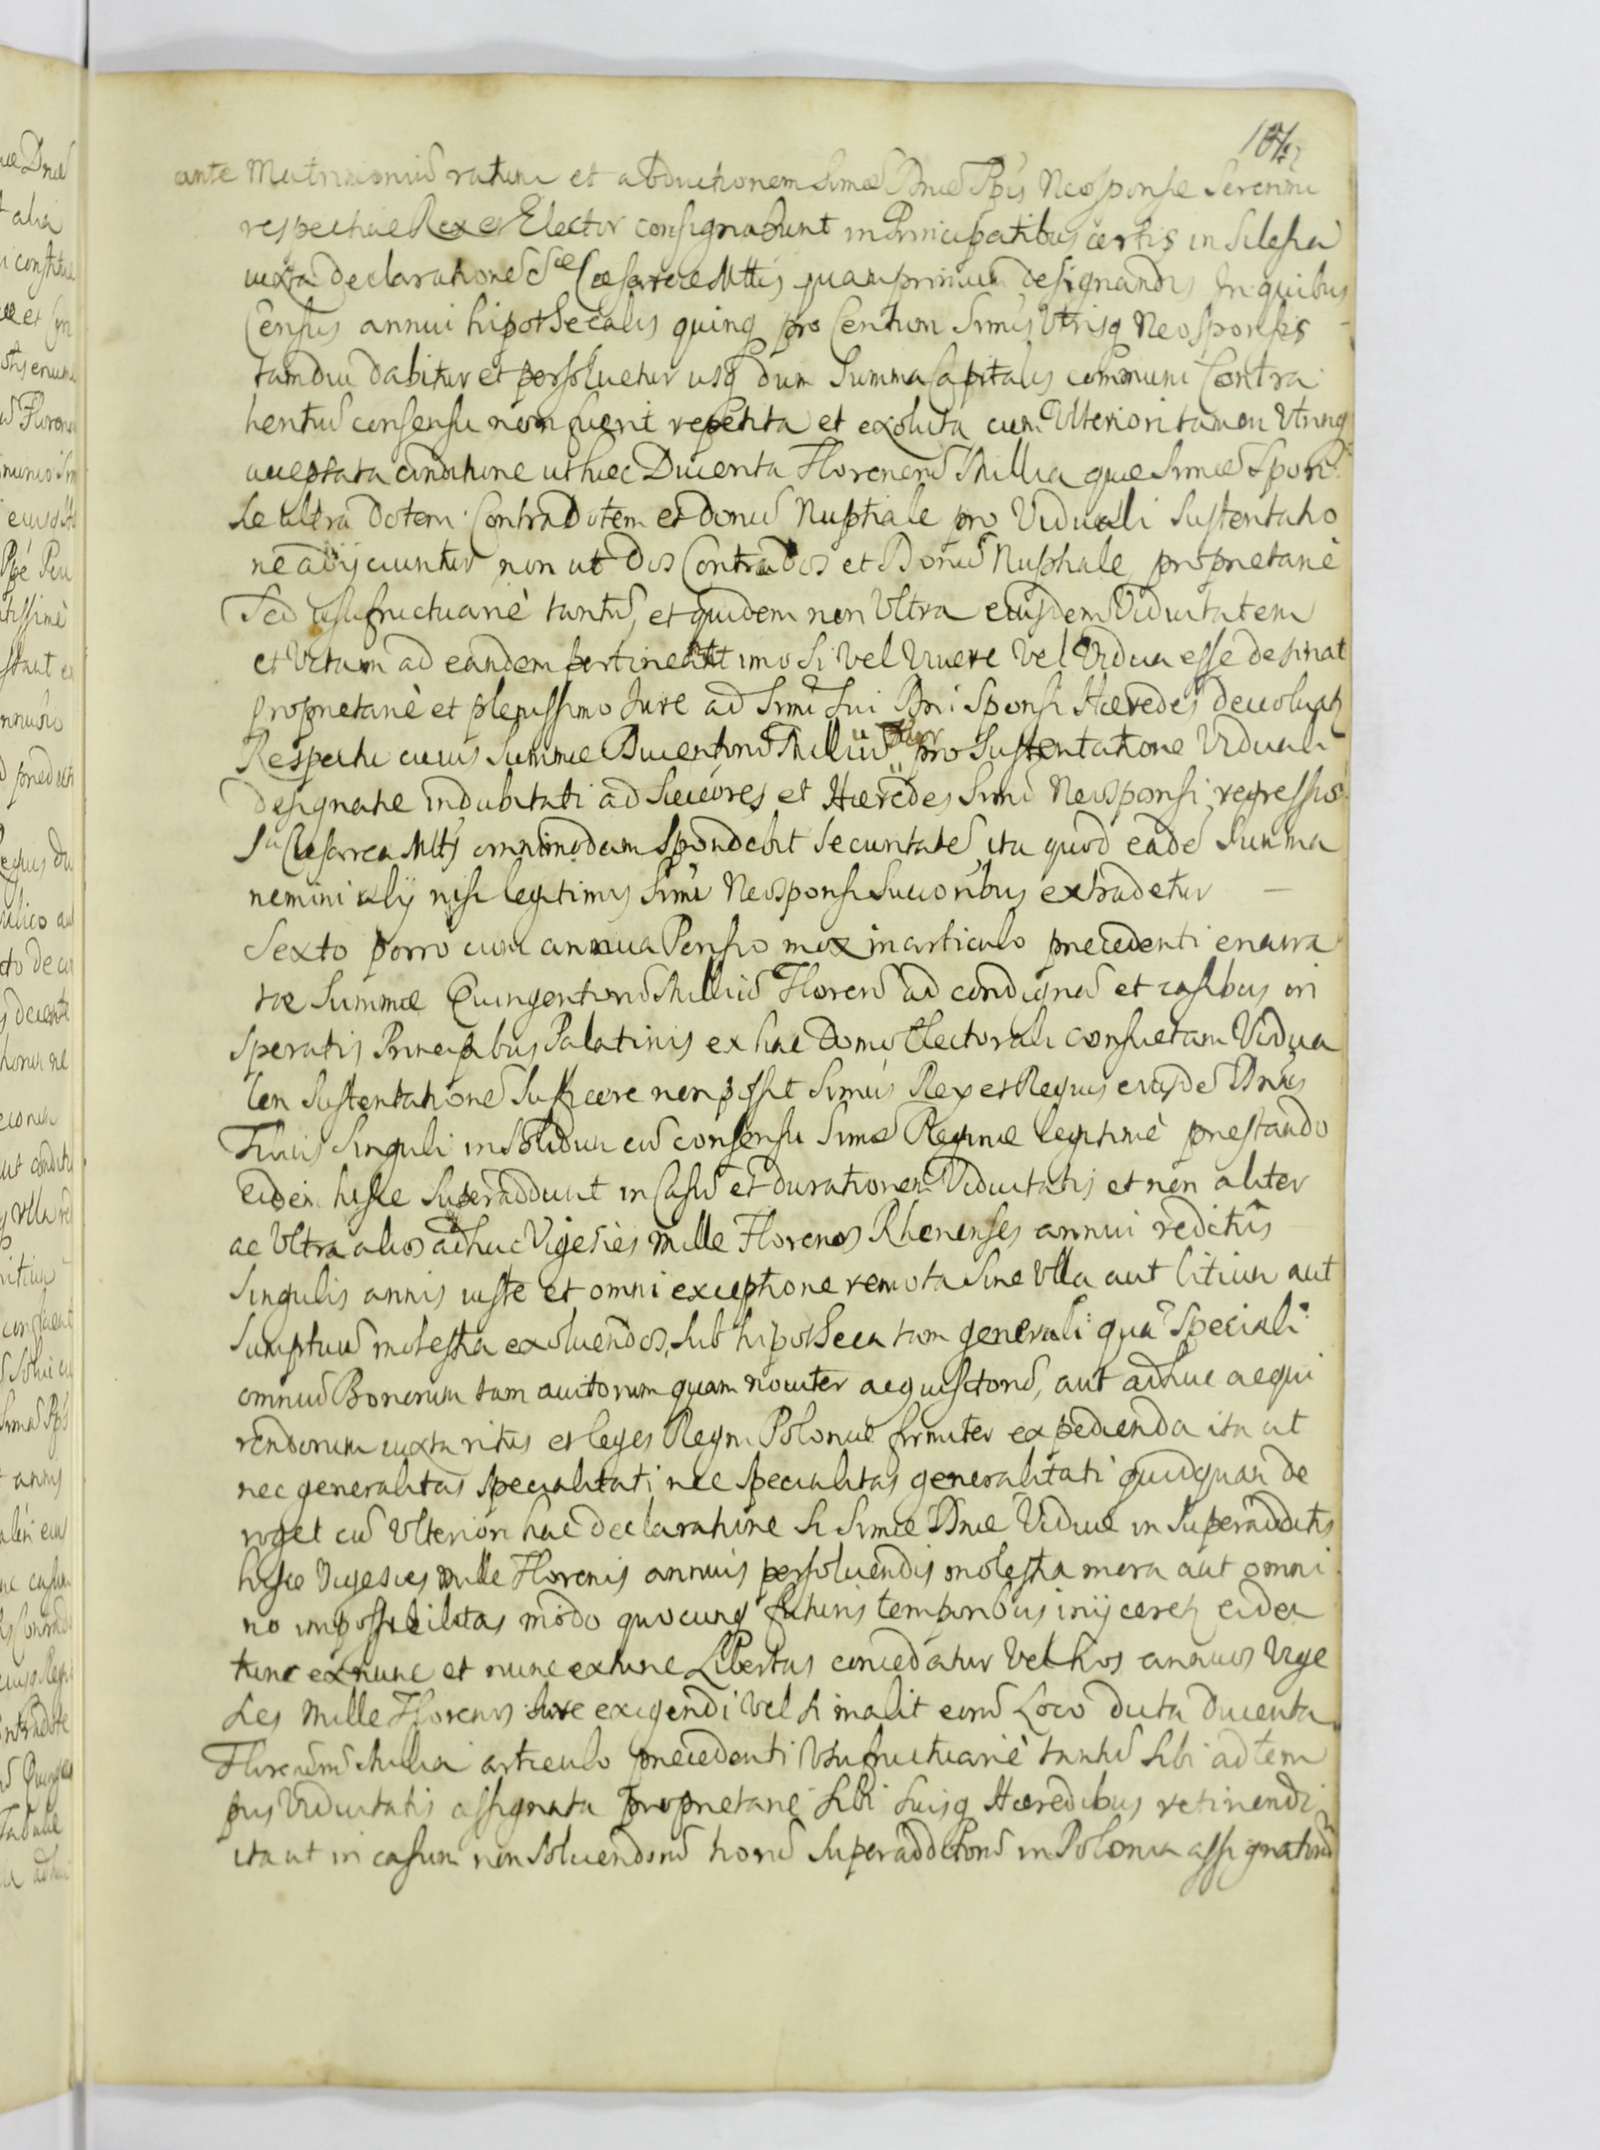 ante Matrimoniū ratum et abductionem Simæ Dnæ Ppis Neosponsæ Serenmi
respectiue Rex et Elector consignabunt in Principatibus certis in Silesia
iuxta declarationē Sæ Cæsareæ Mttis quamprimum designandis In quibus
Census annui hipothecalis quinq pro Centum Simis Vtrisq Neosponsis
tamdiu dabitur et persoluetur usq dum Summa Capitalis communi Contra
hentiū consensu non fuerit repetita et exoluta cum Ulteriori tamen Vtrinq
acceptata conditione ut hæc Ducenta Florenorū Millia quæ Simæ Spon
sæ ultra dotem Contradotem et donū Nuptiale pro Viduali sustentatio
ne adijciuntur non ut Dos Contrados et Donū Nuptiale proprietariè
Sed usufructuariè tantū, et quidem non Vltra eiusdem Viduitatem
et Vitam ad eandem pertineant imo si vel Viuere vel Vidua esse desinat
proprietariè et plenissimo Jure ad Simi sui Dni Sponsi Hæredes deuoluatr
Respectu cuius Summæ Ducentorū Milliū pro Sustentatione Viduali
designatæ indubitati ad Succores et Hæredes Simi Neosponsi regressus
Sa Cæsarea Mttas omnimodam spondebit securitatē, ita quod eadē Summa
nemini alij nisi legitimis Simi Neosponsi Succoribus extradetur
Sexto porro cum annua Pensio mox in articulo precedenti enarra
tæ Summæ Quingentorū Milliū Florenū ad condignā et casibus in
speratis Principibus Palatinis ex hac domo Electorali consuetam Vidua
lem Sustentationē Sufficere non possit Simus Rex et Regius eiusdē Dnus
Filius singuli in solidum cū consensu Simæ Reginæ legitimè prestando
eidem hisce superaddunt in Casū et durationem Viduitatis et non aliter
ac Vltra alios adhuc Vigesies Mille Florenos Rhenenses annui reditûs
singulis annis iuste et omni exceptione remota sine Vlla aut litium aut
sumptuū molestia exoluendos, sub hipotheca tam generali quā speciali
omniū Bonorum tam auitorum quam nouiter acquisitorū, aut adhuc acqui
rendorum iuxta ritus et leges Regni Poloniæ firmiter expedienda ita ut
nec generalitas specialitati nec specialitas generalitati quidquam de
roget cū Vlteriori hac declaratione si Simæ Dnæ Viduæ in superadditis
hisce Vigesies Mille Florenis annuis persoluendis molestia mera aut omni
no impossibilitas modo quocunq futuris temporibus inijceretr eidem
tunc ex nunc et nunc ex tunc Libertas concedatur Vel hos annuos Vige
sies Mille Florenos Jure exigendi Vel si malit eorū Loco dicta Ducenta
Florenorū Millia articulo precedenti Vsufructuariè tantū sibi ad tem
pus Viduitatis assignata proprietariè sibi suisq Hæredibus retinendi
ita ut in casum non soluendorū horū superadditorū in Polonia assignatorū